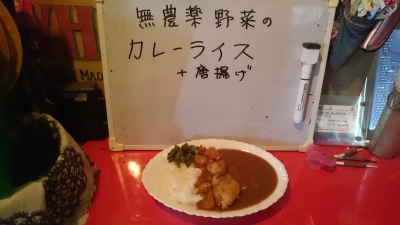 無農薬野菜の
カレーライス
+唐揚げ
MAD